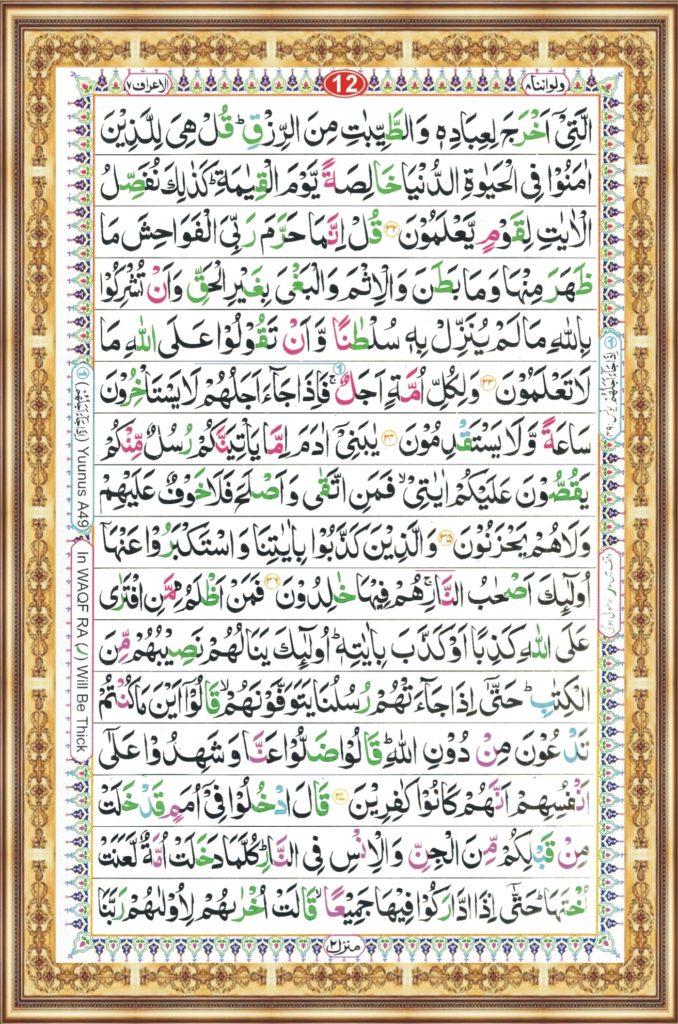 ولواننا ۸
12
الاعراف ۷
الَّتِیْۤ اَخْرَجَ لِعِبَادِهٖ وَالطَّیِّبٰتِ مِنَ الرِّزْقِ ؕ قُلْ هِیَ لِلَّذِیْنَ
اٰمَنُوْا فِی الْحَیٰوةِ الدُّنْیَا خَالِصَةً یَّوْمَ الْقِیٰمَةِ ؕ كَذٰلِكَ نُفَصِّلُ
الْاٰیٰتِ لِقَوْمٍ یَّعْلَمُوْنَ ۝۳۲ قُلْ اِنَّمَا حَرَّمَ رَبِّیَ الْفَوَاحِشَ مَا
ظَهَرَ مِنْهَا وَمَا بَطَنَ وَالْاِثْمَ وَالْبَغْیَ بِغَیْرِ الْحَقِّ وَاَنْ تُشْرِكُوْا
بِاللّٰهِ مَا لَمْ یُنَزِّلْ بِهٖ سُلْطٰنًا وَّاَنْ تَقُوْلُوْا عَلَی اللّٰهِ مَا
لَا تَعْلَمُوْنَ ۝۳۳ وَلِكُلِّ اُمَّةٍ اَجَلٌ ۚ فَاِذَا جَآءَ اَجَلُهُمْ لَا یَسْتَاْخِرُوْنَ
سَاعَةً وَّلَا یَسْتَقْدِمُوْنَ ۝۳۴ یٰبَنِیْۤ اٰدَمَ اِمَّا یَاْتِیَنَّكُمْ رُسُلٌ مِّنْكُمْ
یَقُصُّوْنَ عَلَیْكُمْ اٰیٰتِیْ ۙ فَمَنِ اتَّقٰی وَاَصْلَحَ فَلَا خَوْفٌ عَلَیْهِمْ
وَلَا هُمْ یَحْزَنُوْنَ ۝۳۵ وَالَّذِیْنَ كَذَّبُوْا بِاٰیٰتِنَا وَاسْتَكْبَرُوْا عَنْهَاۤ
اُولٰٓئِكَ اَصْحٰبُ النَّارِ ۚ هُمْ فِیْهَا خٰلِدُوْنَ ۝۳۶ فَمَنْ اَظْلَمُ مِمَّنِ افْتَرٰی
عَلَی اللّٰهِ كَذِبًا اَوْ كَذَّبَ بِاٰیٰتِهٖ ؕ اُولٰٓئِكَ یَنَالُهُمْ نَصِیْبُهُمْ مِّنَ
الْكِتٰبِ ؕ حَتّٰۤی اِذَا جَآءَتْهُمْ رُسُلُنَا یَتَوَفَّوْنَهُمْ ۙ قَالُوْۤا اَیْنَ مَا كُنْتُمْ
تَدْعُوْنَ مِنْ دُوْنِ اللّٰهِ ؕ قَالُوْا ضَلُّوْا عَنَّا وَشَهِدُوْا عَلٰۤی
اَنْفُسِهِمْ اَنَّهُمْ كَانُوْا كٰفِرِیْنَ ۝۳۷ قَالَ ادْخُلُوْا فِیْۤ اُمَمٍ قَدْ خَلَتْ
مِنْ قَبْلِكُمْ مِّنَ الْجِنِّ وَالْاِنْسِ فِی النَّارِ ؕ كُلَّمَا دَخَلَتْ اُمَّةٌ لَّعَنَتْ
اُخْتَهَا ؕ حَتّٰۤی اِذَا ادَّارَكُوْا فِیْهَا جَمِیْعًا ۙ قَالَتْ اُخْرٰىهُمْ لِاُوْلٰىهُمْ رَبَّنَا
منزل ۲
(اِذَا جَآءَ اَجَلُهُمْ) Yuunus A49
In WAQF RA (ر) Will Be Thick